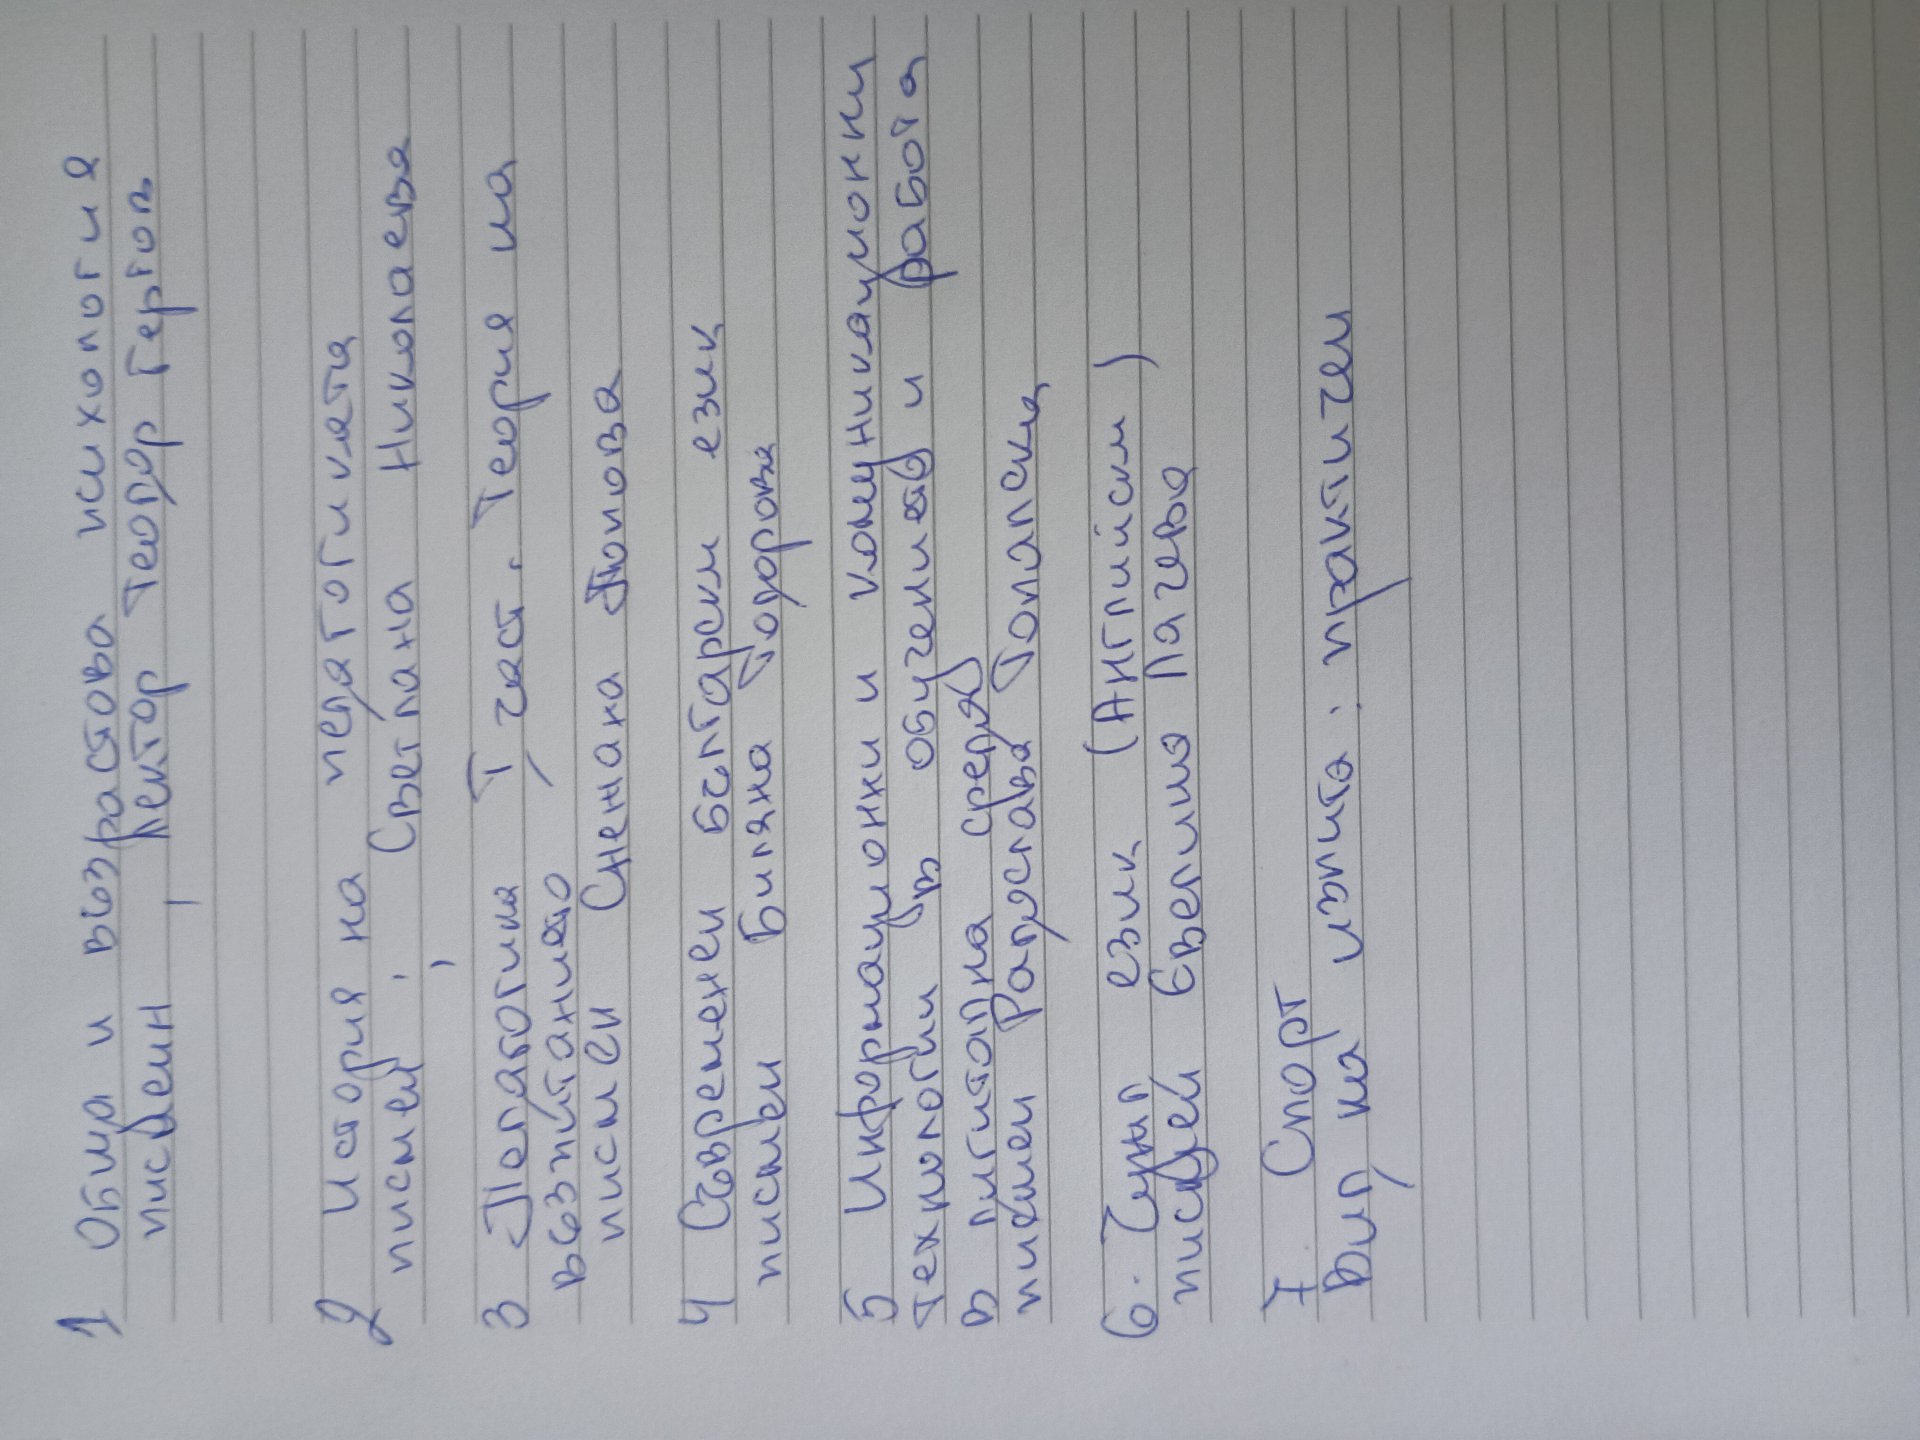 1 Обща и възрастова психология
писмен, лектор Теодор Гергов
2 История на педагогиката
писмен, Светлана Николаева
3 Педагогика I част. Теория на
възпитанието
писмен Снежана Попова
4 Съвременен български език
писмен Биляна Тодорова
5 Информационни и комуникационни
технологии в обучението и работа
в дигитална среда
писмен Радослава Топалска
6. Чужд език (Английски)
писмен Евелина
7. Спорт
Вид на изпита: практичен